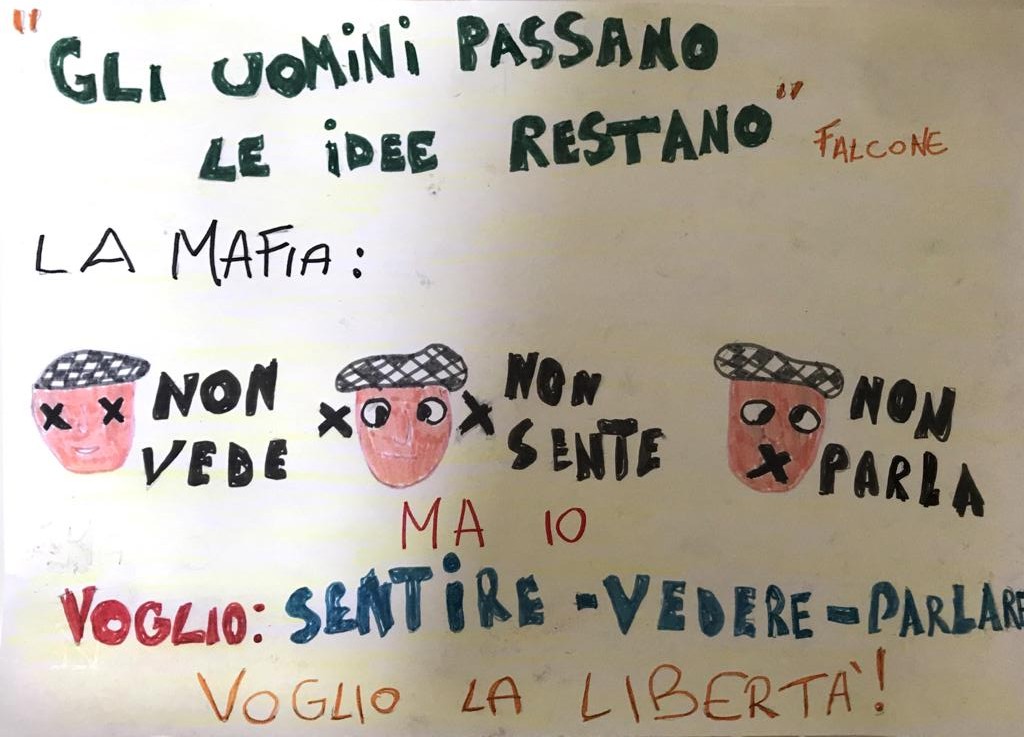 "GLI UOMINI PASSANO
LE IDEE RESTANO" FALCONE
LA MAFIA:
NON VEDE
NON SENTE
NON PARLA
MA IO
VOGLIO: SENTIRE - VEDERE - PARLARE
VOGLIO LA LIBERTÀ!